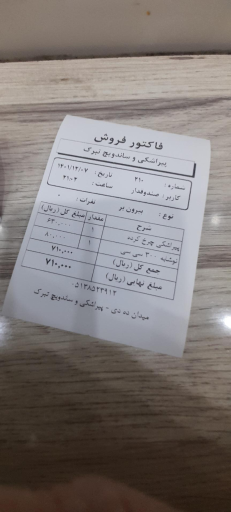 فاکتور فروش
پیراشکی و ساندویچ تبرک
شماره : ۲۱۰ تاریخ : ۱۴۰۱/۱۲/۰۷
کاربر : صندوقدار ساعت : ۲۱:۰۲
نوع : بیرون بر نفرات : ۰
شرح مقدار مبلغ کل (ریال)
پیراشکی چرخ کرده ۱
نوشابه ۳۰۰ سی سی ۱
جمع کل (ریال) ۷۱۰,۰۰۰
مبلغ نهایی (ریال) ۷۱۰,۰۰۰
میدان - پیراشکی و ساندویچ تبرک